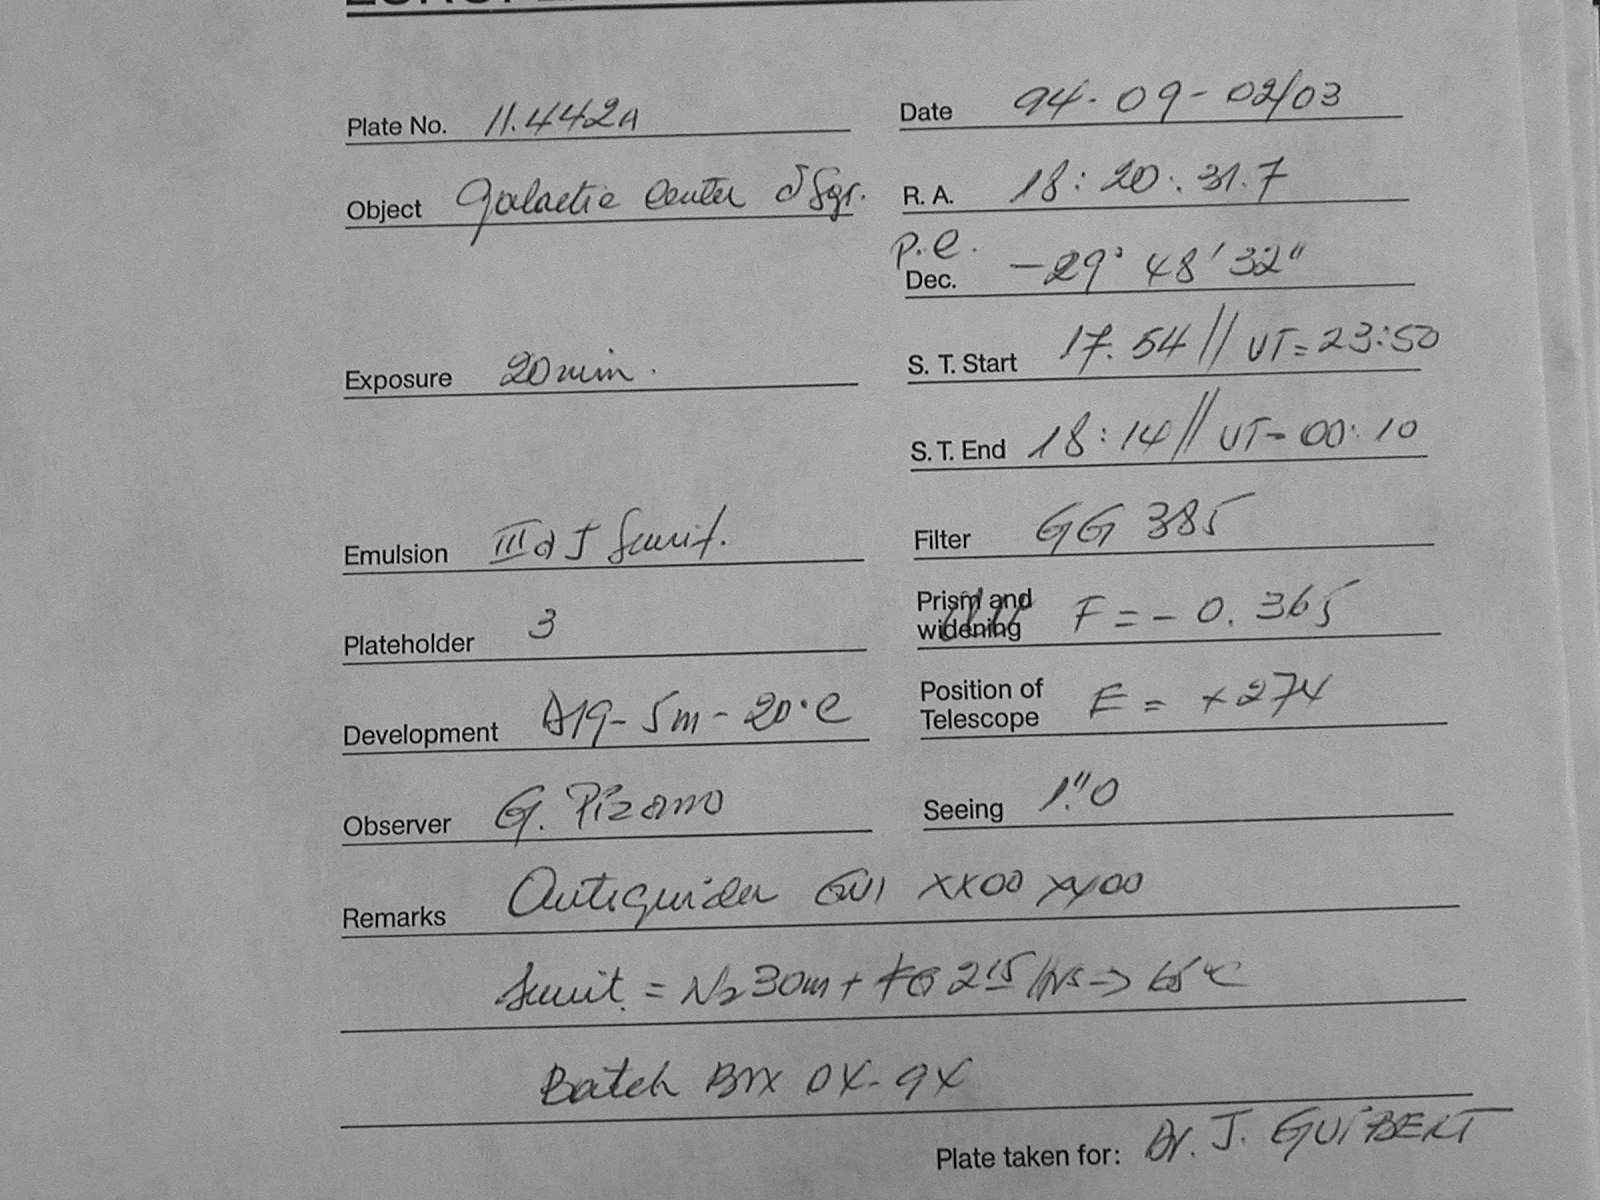 Plate No. 11.442A
Date 94-09-02/03
Object Galactic Center δ Sgr.
R. A. 18:20:31.7
P.E.
Dec. -29° 48' 32"
Exposure 20 min.
S. T. Start 17.54 // UT=23:50
S. T. End 18:14 // UT=00:10
Emulsion IIIaJ
Filter GG 385
Plateholder 3
Prism and widening F = -0.365
Development D19-5m-20°C
Position of Telescope E = +274
Observer G. Pizarro
Seeing 1."0
Remarks Autoguider XX00 YY00
= N2 30m + 2 15 hrs → 65°C
Batch Box
Plate taken for: Dr. J. GUIBERT